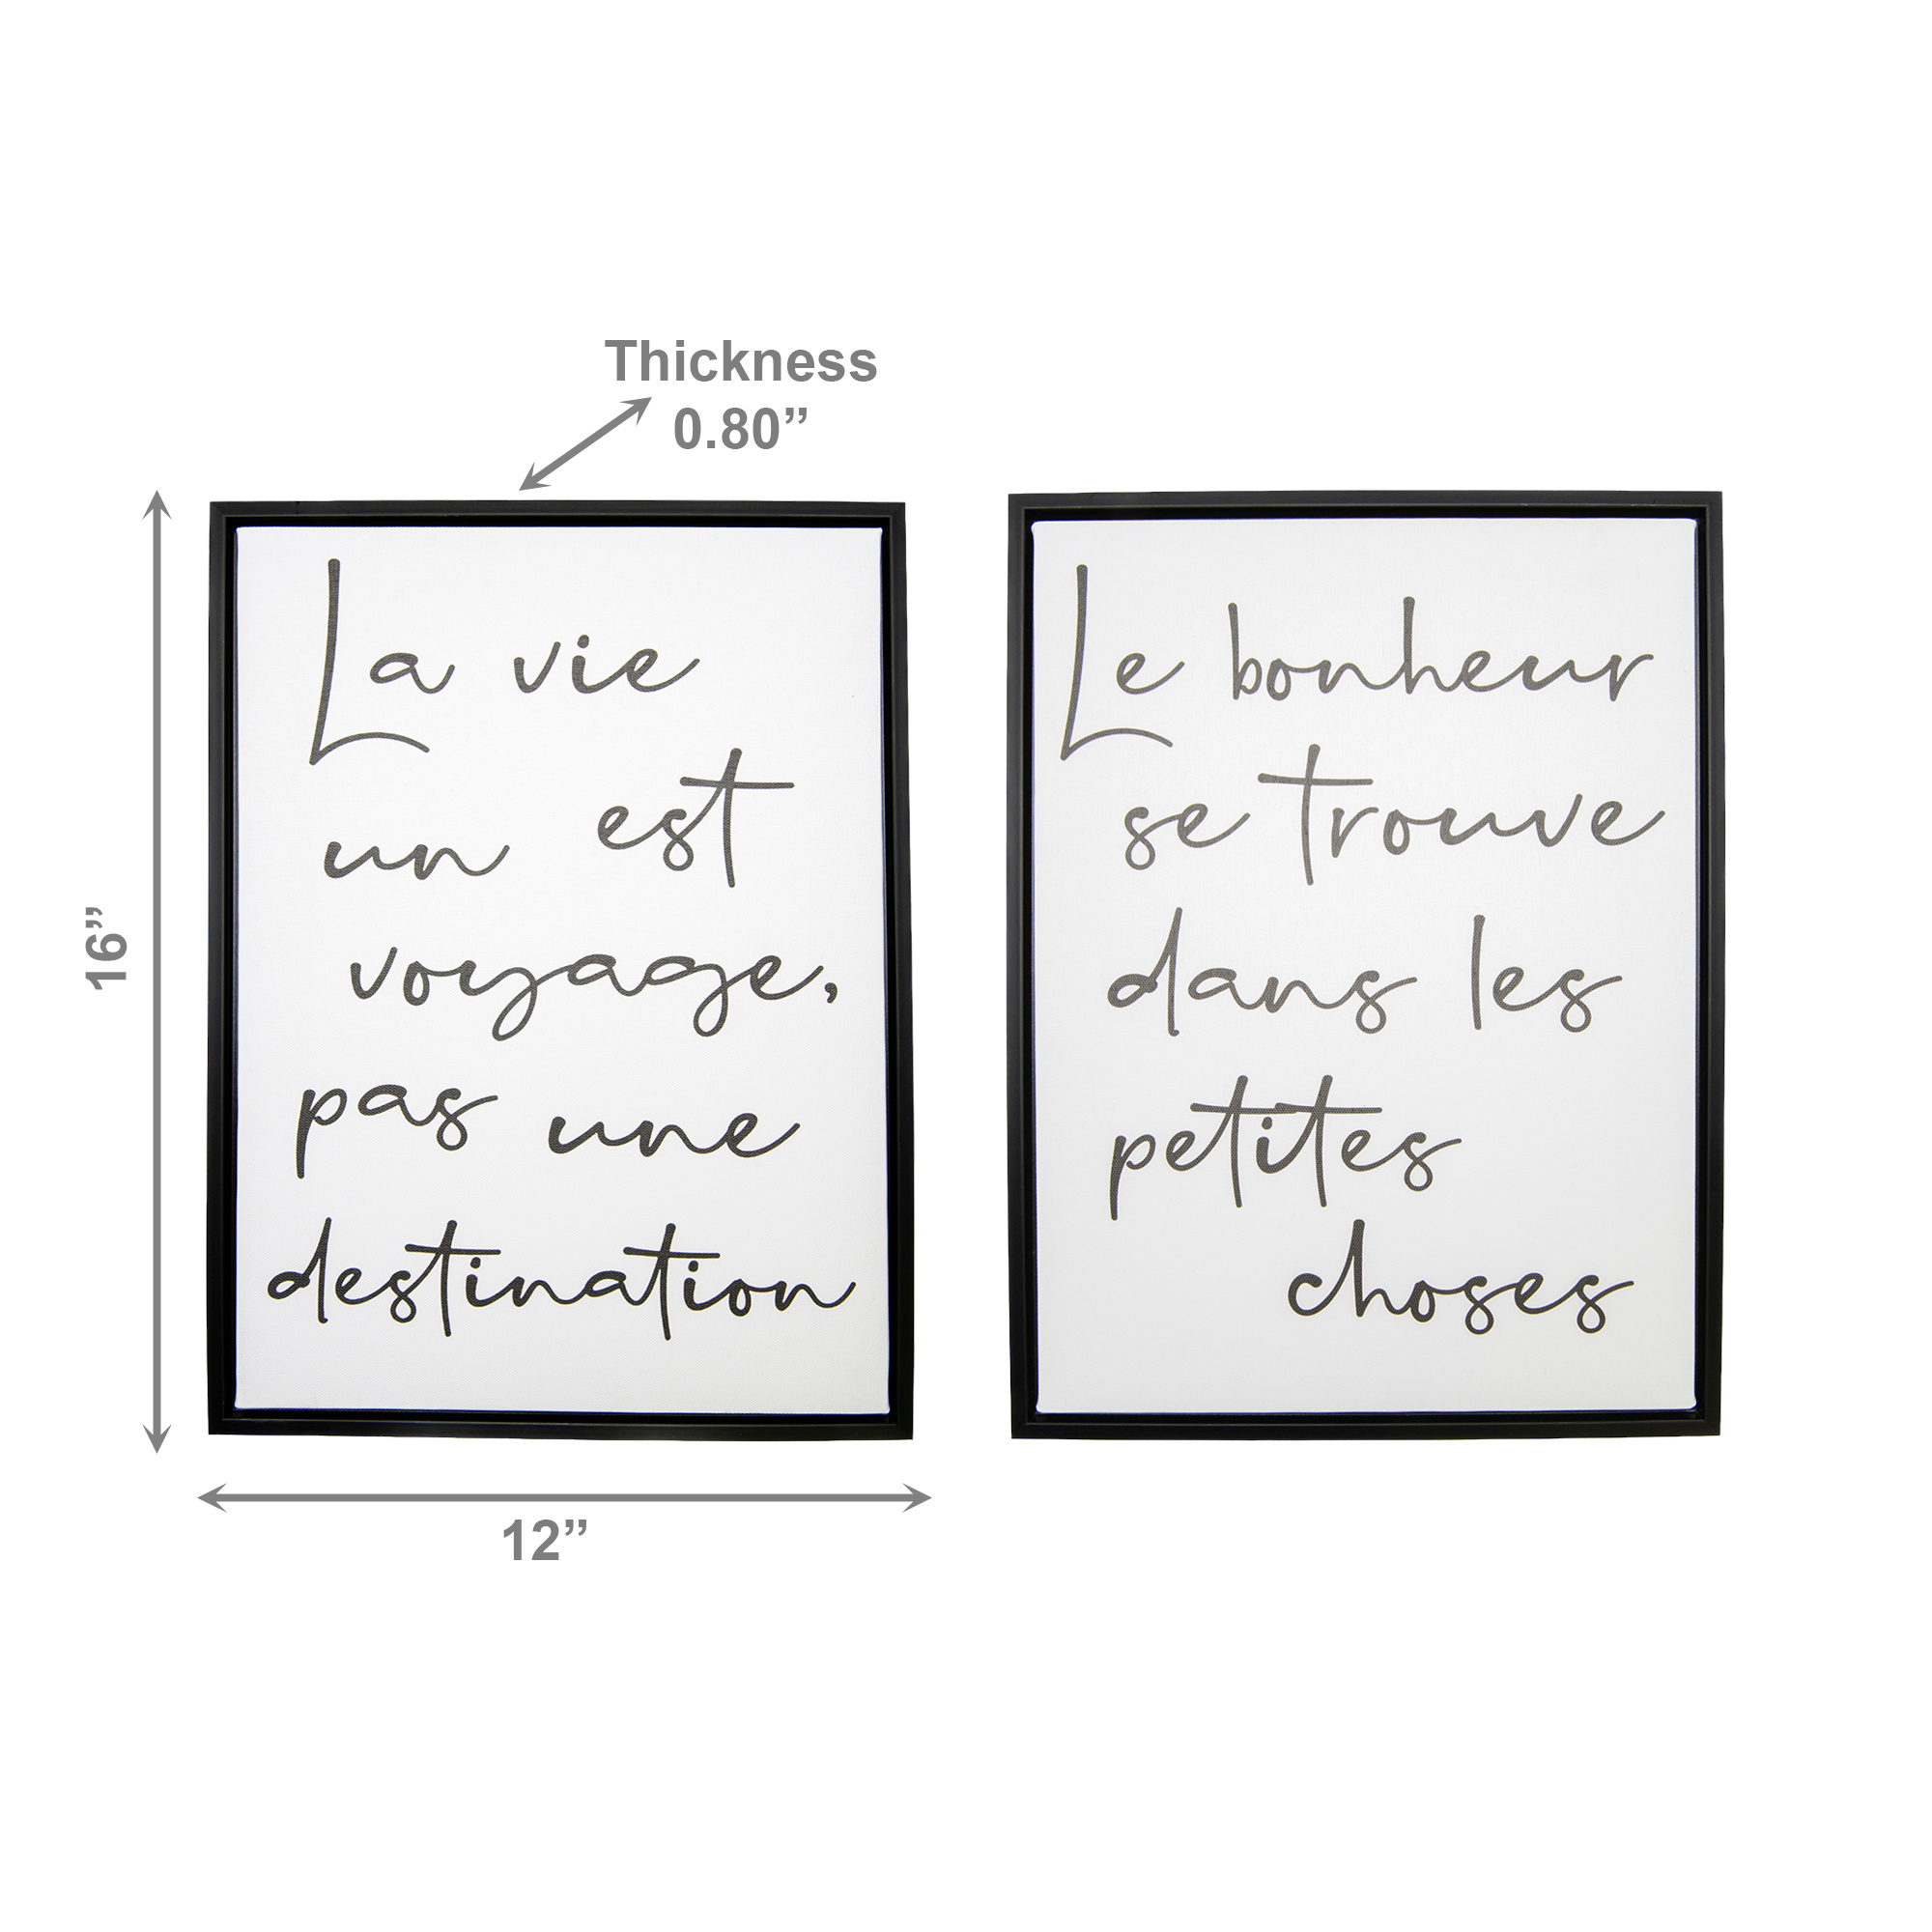 Thickness
0.80”
16”
La vie
un est
voyage,
pas une
destination
12”
Le bonheur
se trouve
dans les
petites
choses